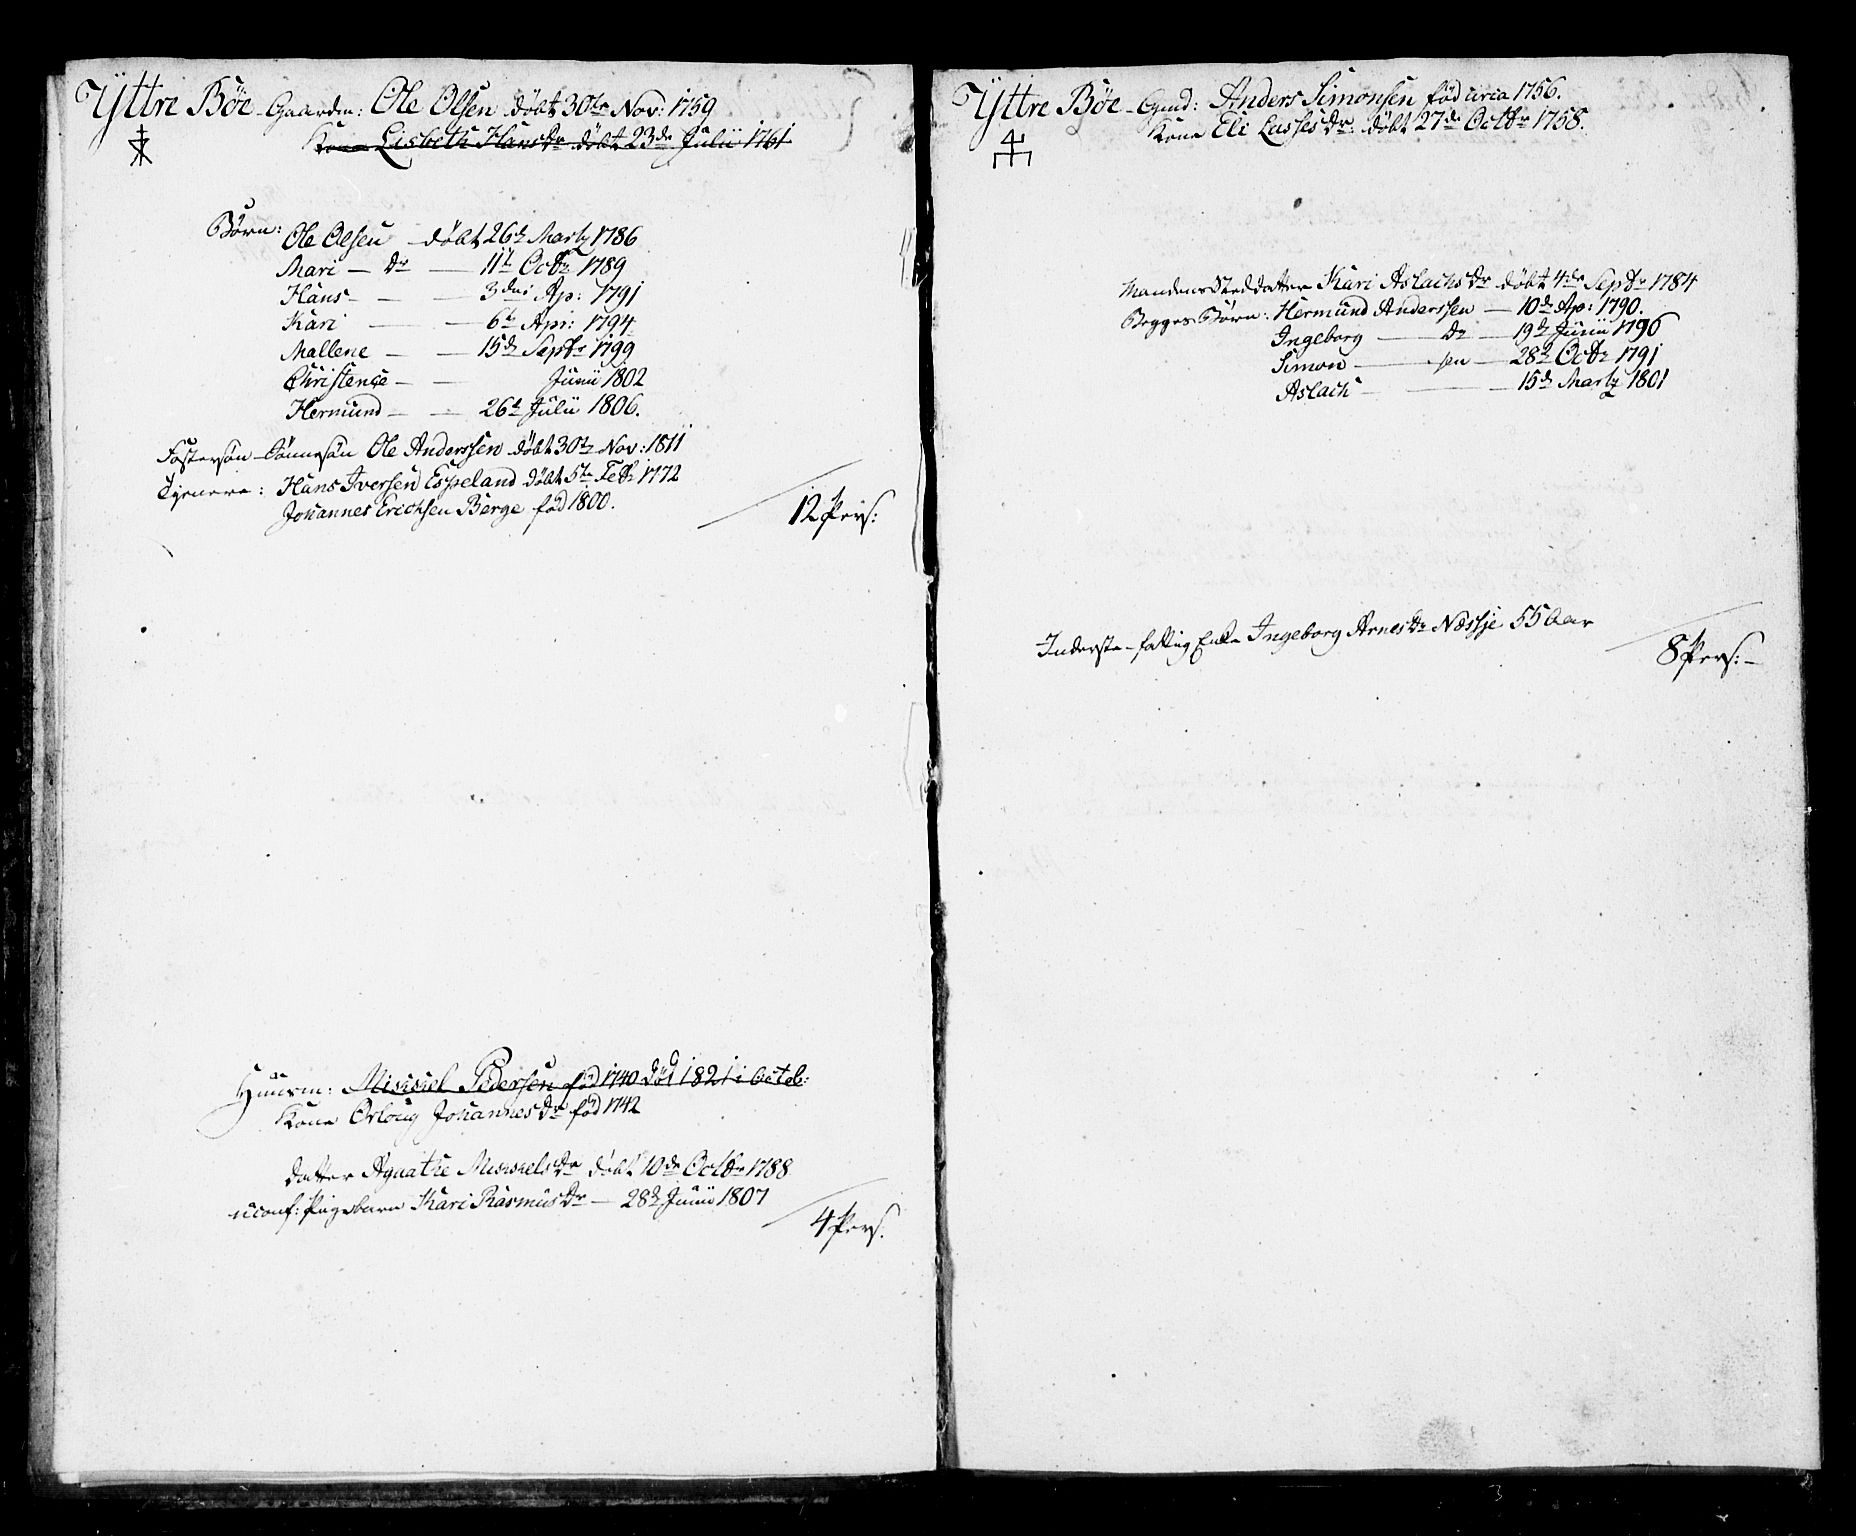 Yttre Bøe - Gaardm: Ole Olsen døbt 30te Nov: 1759
Kone Lisbeth Hansdr døbt 23de Julii 1761
Børn: Ole Olsen døbt 26de Martz 1786
Mari — dr — 11te Octbr 1789
Hans — — 3die Ap: 1791
Kari — — 6te Apr: 1794
Mallene — — 15de Septbr 1799
Christence — — Junii 1802
Hermund — — 26de Julii 1806.
Fostersøn - Sønnesøn Ole Anderssen døbt 30te Nov: 1811
Tjenere: Hans Iversen Espeland døbt 5te Febr 1772
Johannes Erichsen Berge fød 1800.
12 Pers:
Huusm: Michel Pedersen fød 1740 død 1821 i Octob:
Kone Orloug Johannesdr fød 1742
datter Aguathe Michelsdr døbt 10de Octbr 1788
uconf: Pigebarn Kari Rasmusdr — 28de Junii 1807
4 Pers.
Yttre Bøe - Gmd: Anders Simonsen fød circa 1756.
Kone Eli Lassesdr: døbt 27de Octbr 1758.
Mandens Steddatter Kari Aslachsdr døbt 4de Septbr 1784
Begges Børn: Hermund Anderssen — 10de Ap: 1790.
Ingeborg — dr — 19de Junii 1796
Simon — sen — 28de Octbr 1791
Aslach — — 15de Martz 1801
Inderste - fattig Enke Ingeborg Arnesdr Næssje 55 Aar
8 Pers: —